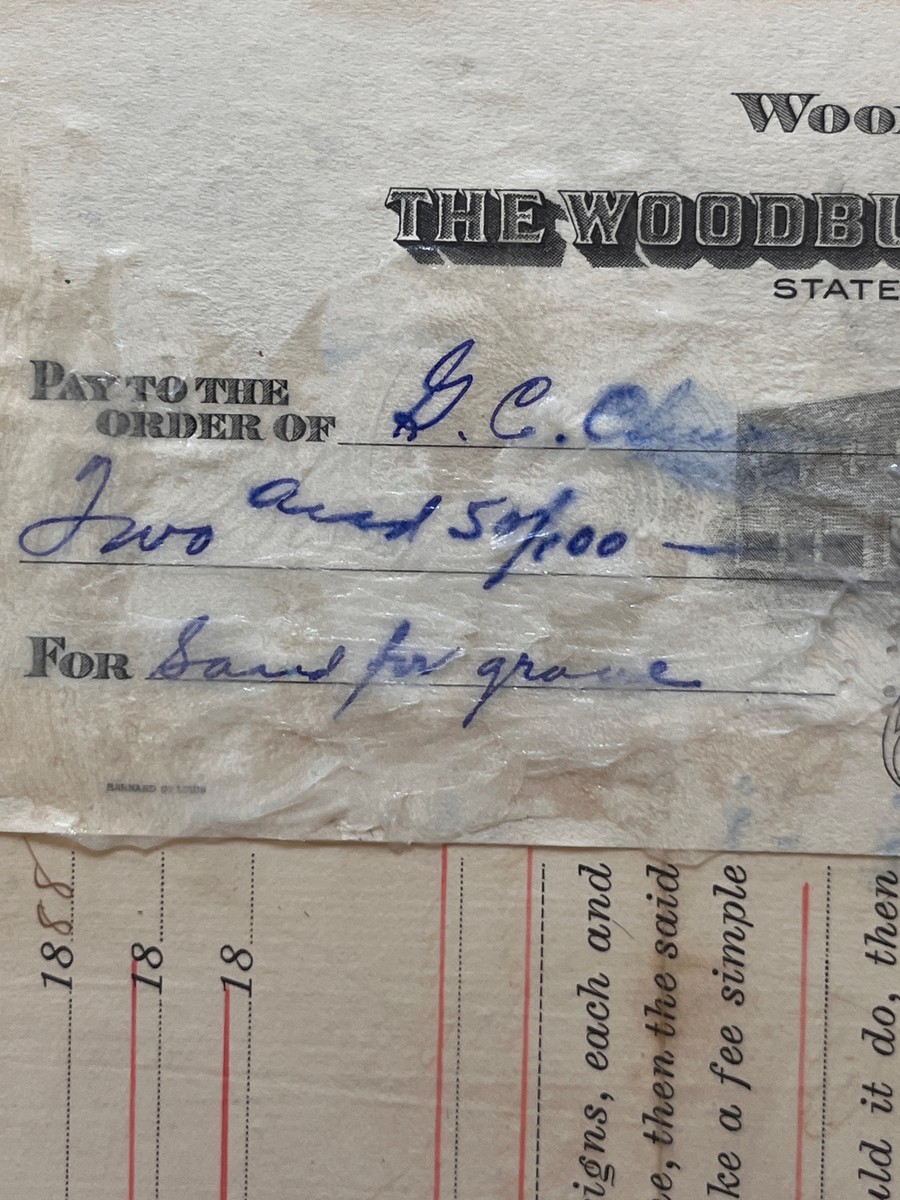 Woo
THE WOODBU
STATE
PAY TO THE
ORDER OF G. C.
Two and 50/100 —
FOR Sand for grave
BARNARD ST LOUIS
1888
18
18
igns, each and
e, then the said
ke a fee simple
ld it do, then